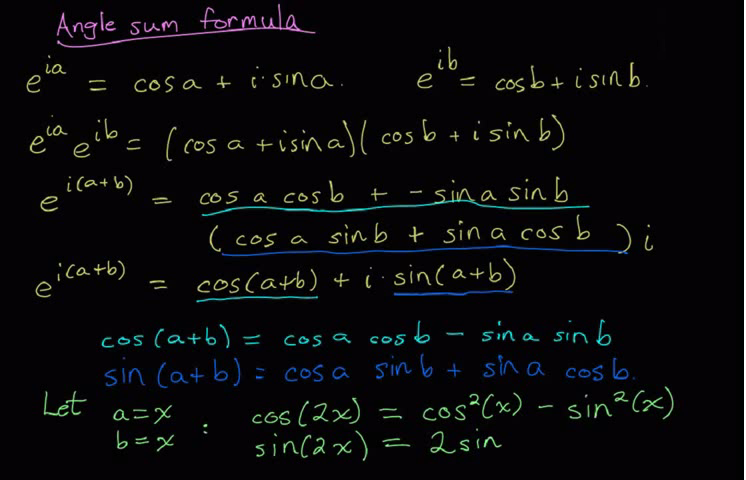 Angle sum formula
e^{ia} = cos a + i · sin a.   e^{ib} = cos b + i sin b.
e^{ia} e^{ib} = (cos a + i sin a)(cos b + i sin b)
e^{i(a+b)} = cos a cos b + - sin a sin b
(cos a sin b + sin a cos b) i
e^{i(a+b)} = cos(a+b) + i · sin(a+b)
cos(a+b) = cos a cos b - sin a sin b
sin(a+b) = cos a sin b + sin a cos b.
Let a=x : cos(2x) = cos²(x) - sin²(x)
b=x sin(2x) = 2 sin